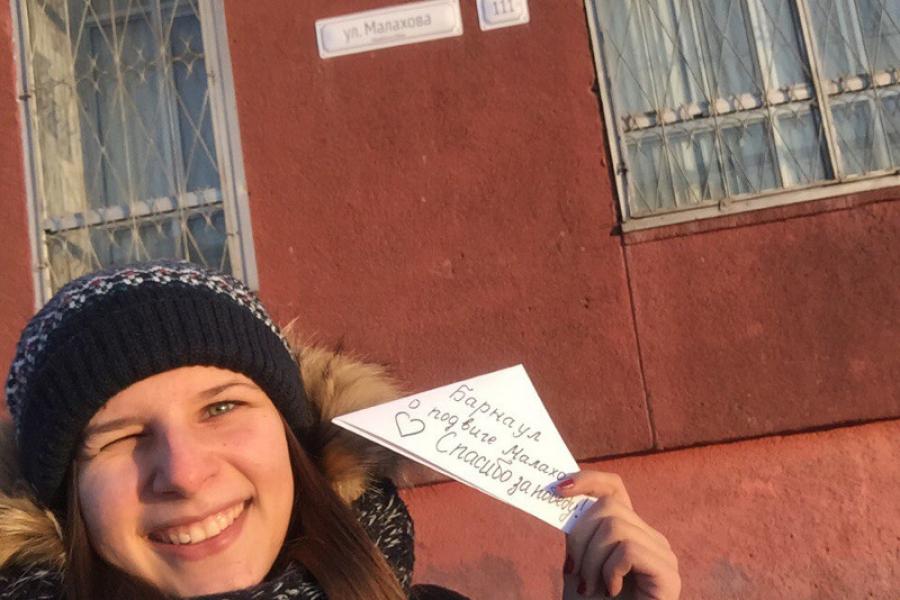 ул. Малахова
111
Барнаул
о подвиге Малахо
Спасибо за победу!